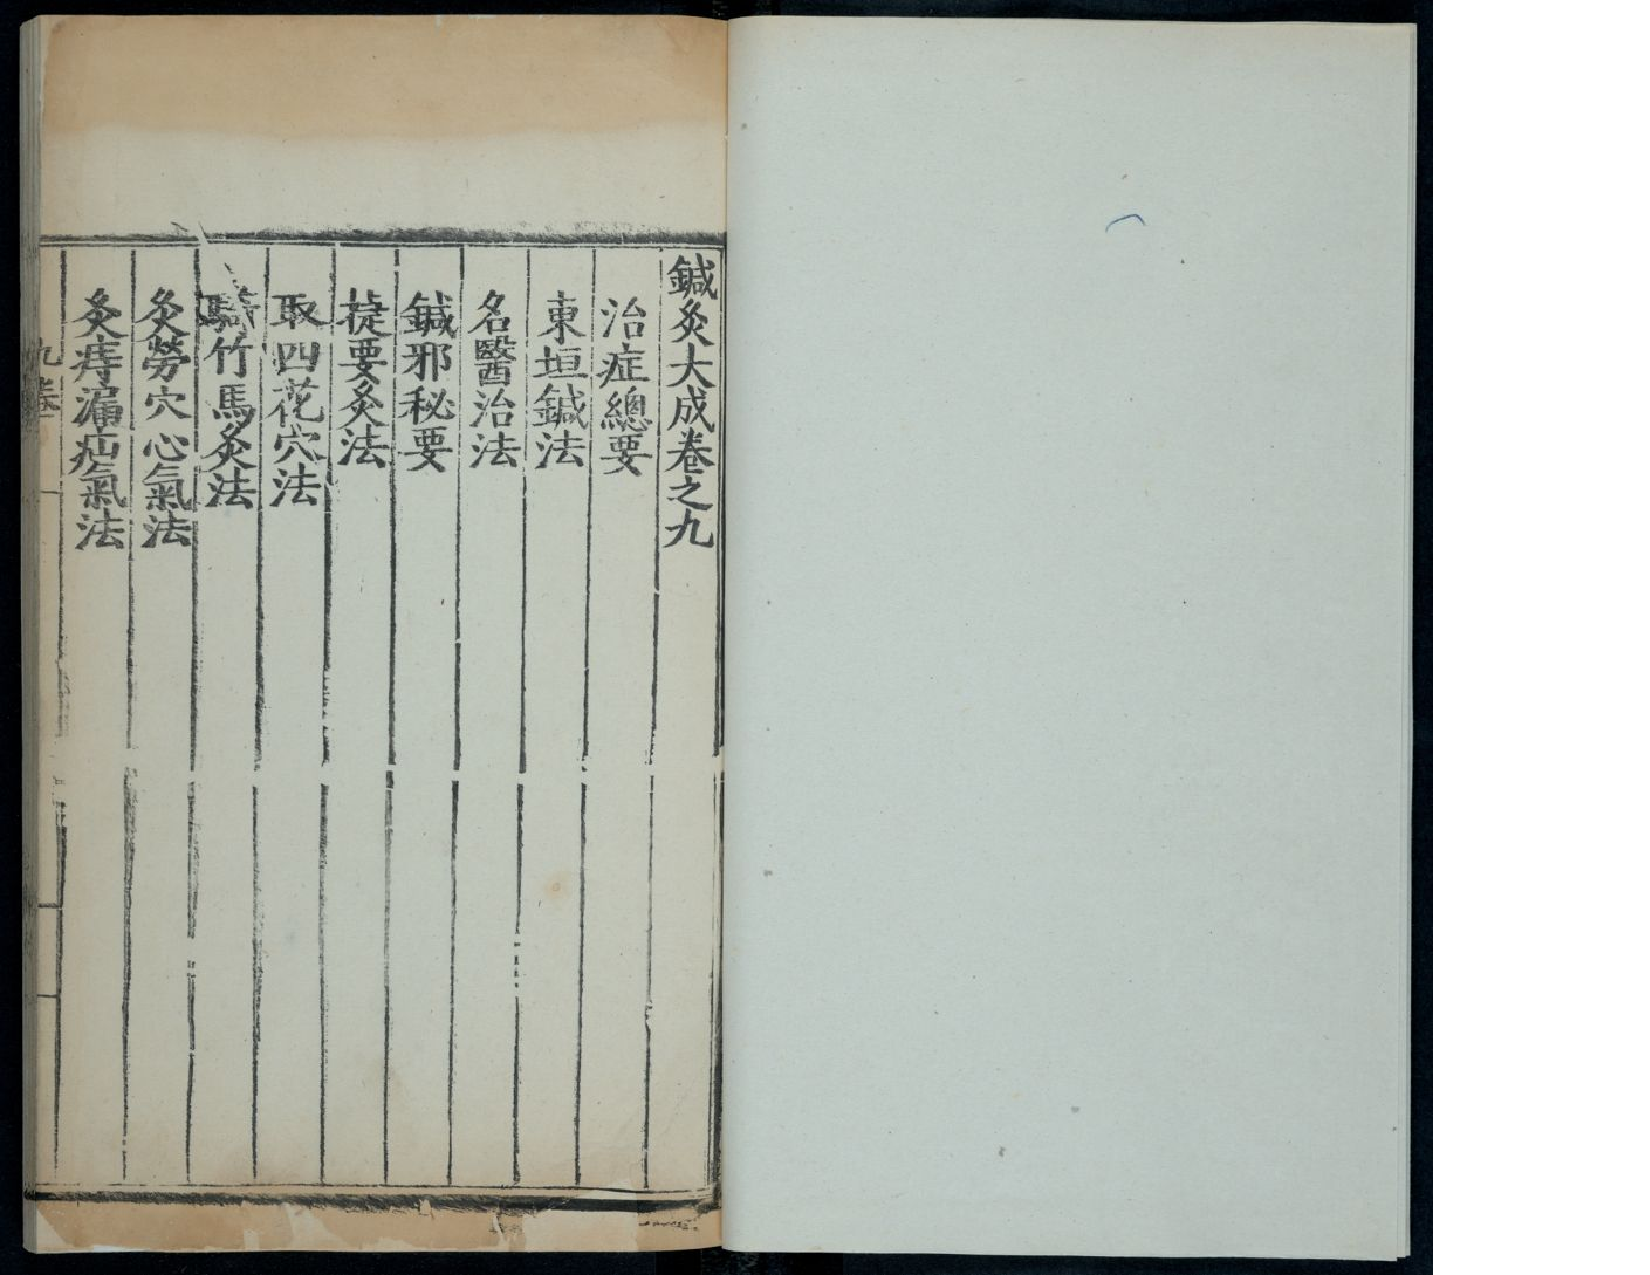 鍼灸大成卷之九
治症總要
東垣鍼法
名醫治法
鍼邪秘要
捷要灸法
取四花穴法
騎竹馬灸法
灸勞穴心氣法
灸痔漏疝氣法
九卷